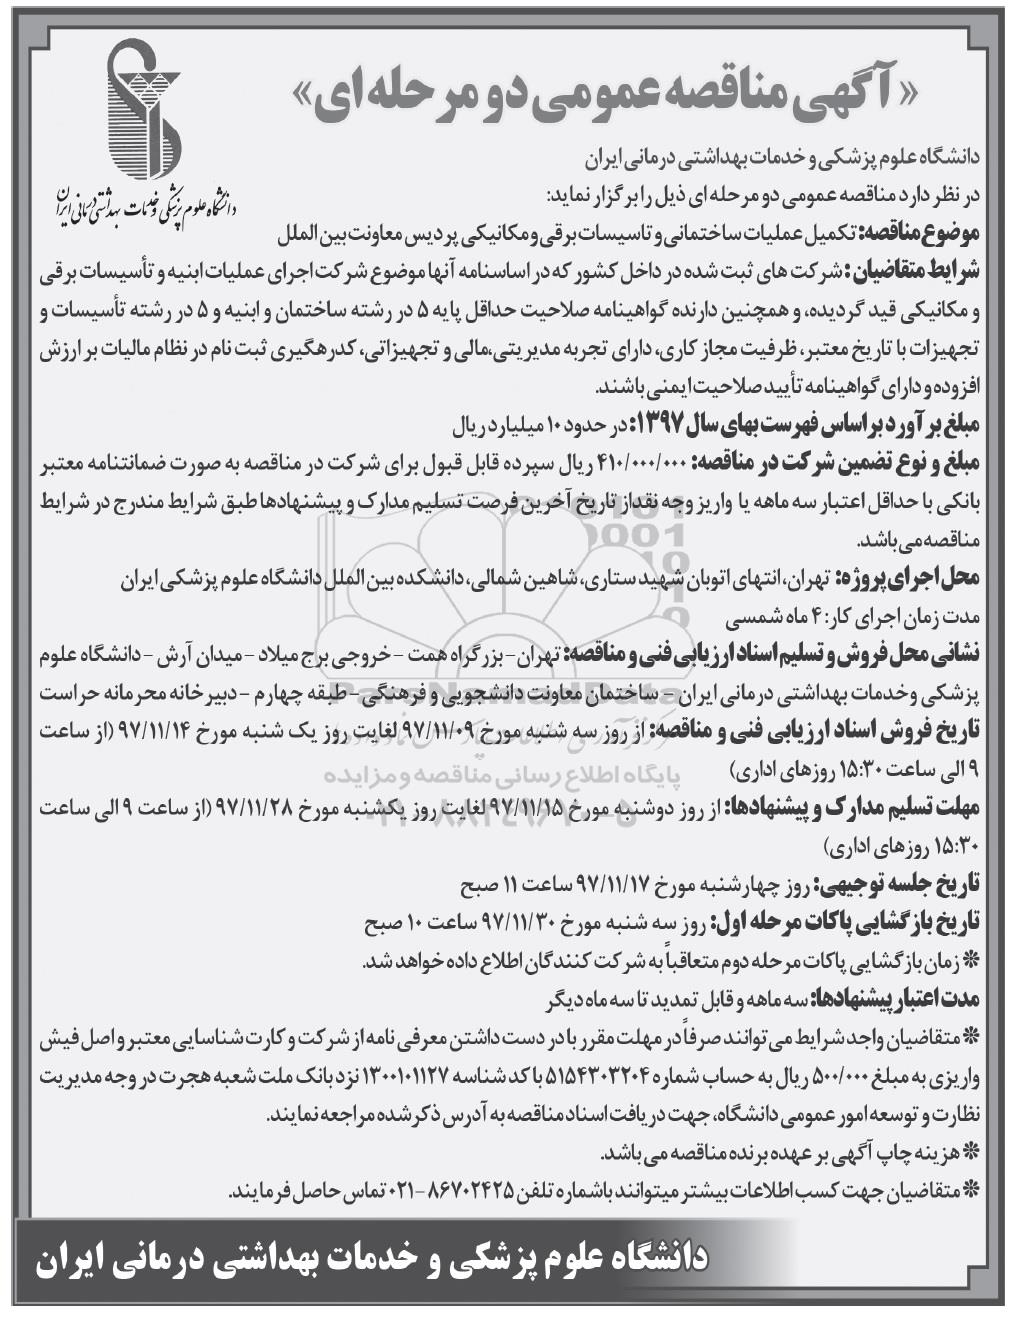 «آگهی مناقصه عمومی دو مرحله ای»
دانشگاه علوم پزشکی و خدمات بهداشتی درمانی ایران
دانشگاه علوم پزشکی و خدمات بهداشتی درمانی ایران
در نظر دارد مناقصه عمومی دو مرحله ای ذیل را برگزار نماید:
موضوع مناقصه: تکمیل عملیات ساختمانی و تاسیسات برقی و مکانیکی پردیس معاونت بین الملل
شرایط متقاضیان: شرکت های ثبت شده در داخل کشور که در اساسنامه آنها موضوع شرکت اجرای عملیات ابنیه و تأسیسات برقی
و مکانیکی قید گردیده، و همچنین دارنده گواهینامه صلاحیت حداقل پایه ۵ در رشته ساختمان و ابنیه و ۵ در رشته تأسیسات و
تجهیزات با تاریخ معتبر، ظرفیت مجاز کاری، دارای تجربه مدیریتی،مالی و تجهیزاتی، کدرهگیری ثبت نام در نظام مالیات بر ارزش
افزوده و دارای گواهینامه تأیید صلاحیت ایمنی باشند.
مبلغ برآورد براساس فهرست بهای سال ۱۳۹۷: در حدود ۱۰ میلیارد ریال
مبلغ و نوع تضمین شرکت در مناقصه: ۴۱۰/۰۰۰/۰۰۰ ریال سپرده قابل قبول برای شرکت در مناقصه به صورت ضمانتنامه معتبر
بانکی با حداقل اعتبار سه ماهه یا واریز وجه نقداز تاریخ آخرین فرصت تسلیم مدارک و پیشنهادها طبق شرایط مندرج در شرایط
مناقصه می باشد.
محل اجرای پروژه: تهران، انتهای اتوبان شهید ستاری، شاهین شمالی، دانشکده بین الملل دانشگاه علوم پزشکی ایران
مدت زمان اجرای کار: ۴ ماه شمسی
نشانی محل فروش و تسلیم اسناد ارزیابی فنی و مناقصه: تهران- بزرگراه همت - خروجی برج میلاد - میدان آرش - دانشگاه علوم
پزشکی وخدمات بهداشتی درمانی ایران - ساختمان معاونت دانشجویی و فرهنگی- طبقه چهارم - دبیرخانه محرمانه حراست
ParsNamadData
تاریخ فروش اسناد ارزیابی فنی و مناقصه: از روز سه شنبه مورخ ۹۷/۱۱/۰۹ لغایت روز یک شنبه مورخ ۹۷/۱۱/۱۴ (از ساعت
۹ الی ساعت ۱۵:۳۰ روزهای اداری)
پایگاه اطلاع رسانی مناقصه و مزایده
مهلت تسلیم مدارک و پیشنهادها: از روز دوشنبه مورخ ۹۷/۱۱/۱۵ لغایت روز یکشنبه مورخ ۹۷/۱۱/۲۸ (از ساعت ۹ الی ساعت
۱۵:۳۰ روزهای اداری)
تاریخ جلسه توجیهی: روز چهارشنبه مورخ ۹۷/۱۱/۱۷ ساعت ۱۱ صبح
تاریخ بازگشایی پاکات مرحله اول: روز سه شنبه مورخ ۹۷/۱۱/۳۰ ساعت ۱۰ صبح
* زمان بازگشایی پاکات مرحله دوم متعاقباً به شرکت کنندگان اطلاع داده خواهد شد.
مدت اعتبار پیشنهادها: سه ماهه و قابل تمدید تا سه ماه دیگر
* متقاضیان واجد شرایط می توانند صرفاً در مهلت مقرر با در دست داشتن معرفی نامه از شرکت و کارت شناسایی معتبر و اصل فیش
واریزی به مبلغ ۵۰۰/۰۰۰ ریال به حساب شماره ۵۱۵۴۳۰۳۲۰۴ با کد شناسه ۱۳۰۰۱۰۱۱۲۷ نزد بانک ملت شعبه هجرت در وجه مدیریت
نظارت و توسعه امور عمومی دانشگاه، جهت دریافت اسناد مناقصه به آدرس ذکر شده مراجعه نمایند.
* هزینه چاپ آگهی بر عهده برنده مناقصه می باشد.
* متقاضیان جهت کسب اطلاعات بیشتر میتوانند باشماره تلفن ۸۶۷۰۲۴۲۵ -۰۲۱ تماس حاصل فرمایند.
دانشگاه علوم پزشکی و خدمات بهداشتی درمانی ایران